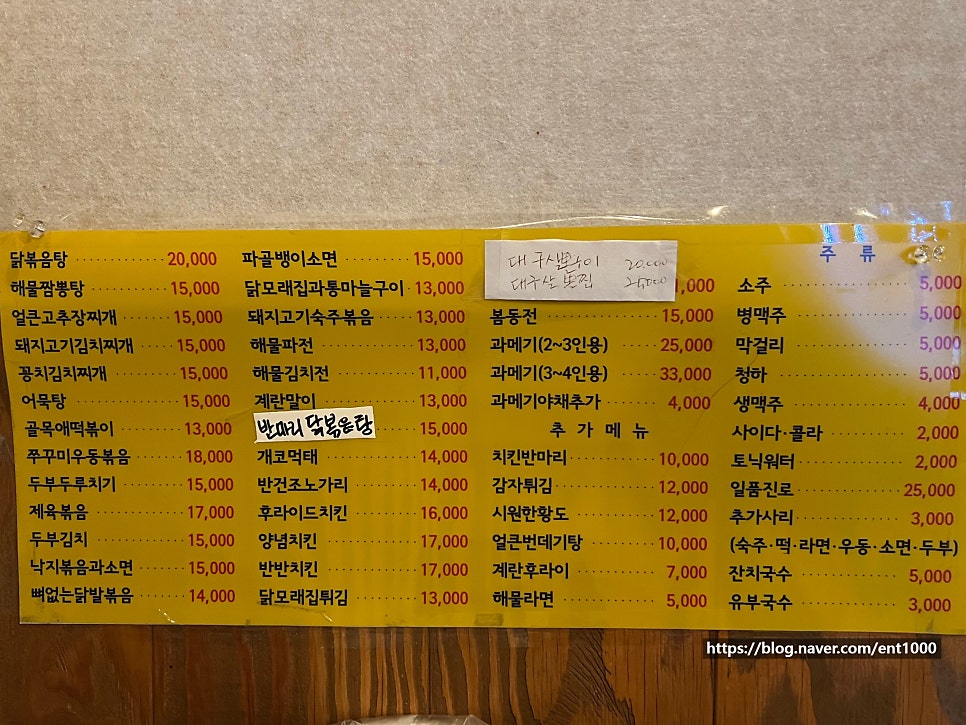 닭볶음탕 20,000
해물짬뽕탕 15,000
얼큰고추장찌개 15,000
돼지고기김치찌개 15,000
꽁치김치찌개 15,000
어묵탕 15,000
골목애떡볶이 13,000
쭈꾸미우동볶음 18,000
두부두루치기 15,000
제육볶음 17,000
두부김치 15,000
낙지볶음과소면 15,000
뼈없는닭발볶음 14,000
파골뱅이소면 15,000
닭모래집과통마늘구이 13,000
돼지고기숙주볶음 13,000
해물파전 13,000
해물김치전 11,000
계란말이 13,000
반마리 닭볶음탕 15,000
개코먹태 14,000
반건조노가리 14,000
후라이드치킨 16,000
양념치킨 17,000
반반치킨 17,000
닭모래집튀김 13,000
20,000
대구살
봄동전 15,000
과메기(2~3인용) 25,000
과메기(3~4인용) 33,000
과메기야채추가 4,000
추가메뉴
치킨반마리 10,000
감자튀김 12,000
시원한황도 12,000
얼큰번데기탕 10,000
계란후라이 7,000
해물라면 5,000
주류
소주 5,000
병맥주 5,000
막걸리 5,000
청하 5,000
생맥주 4,000
사이다·콜라 2,000
토닉워터 2,000
일품진로 25,000
추가사리 3,000
(숙주·떡·라면·우동·소면·두부)
잔치국수 5,000
유부국수 3,000
https://blog.naver.com/ent1000